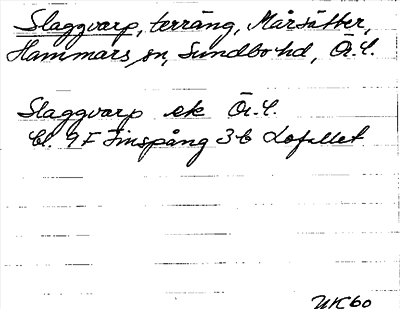 Slaggvarp, terräng, Mårsätter,
Hammars sn, Sundbo hd, Ör.l.
Slaggvarp ek Ör.l.
bl. 9F Finspång 3b Lofallet
UK60